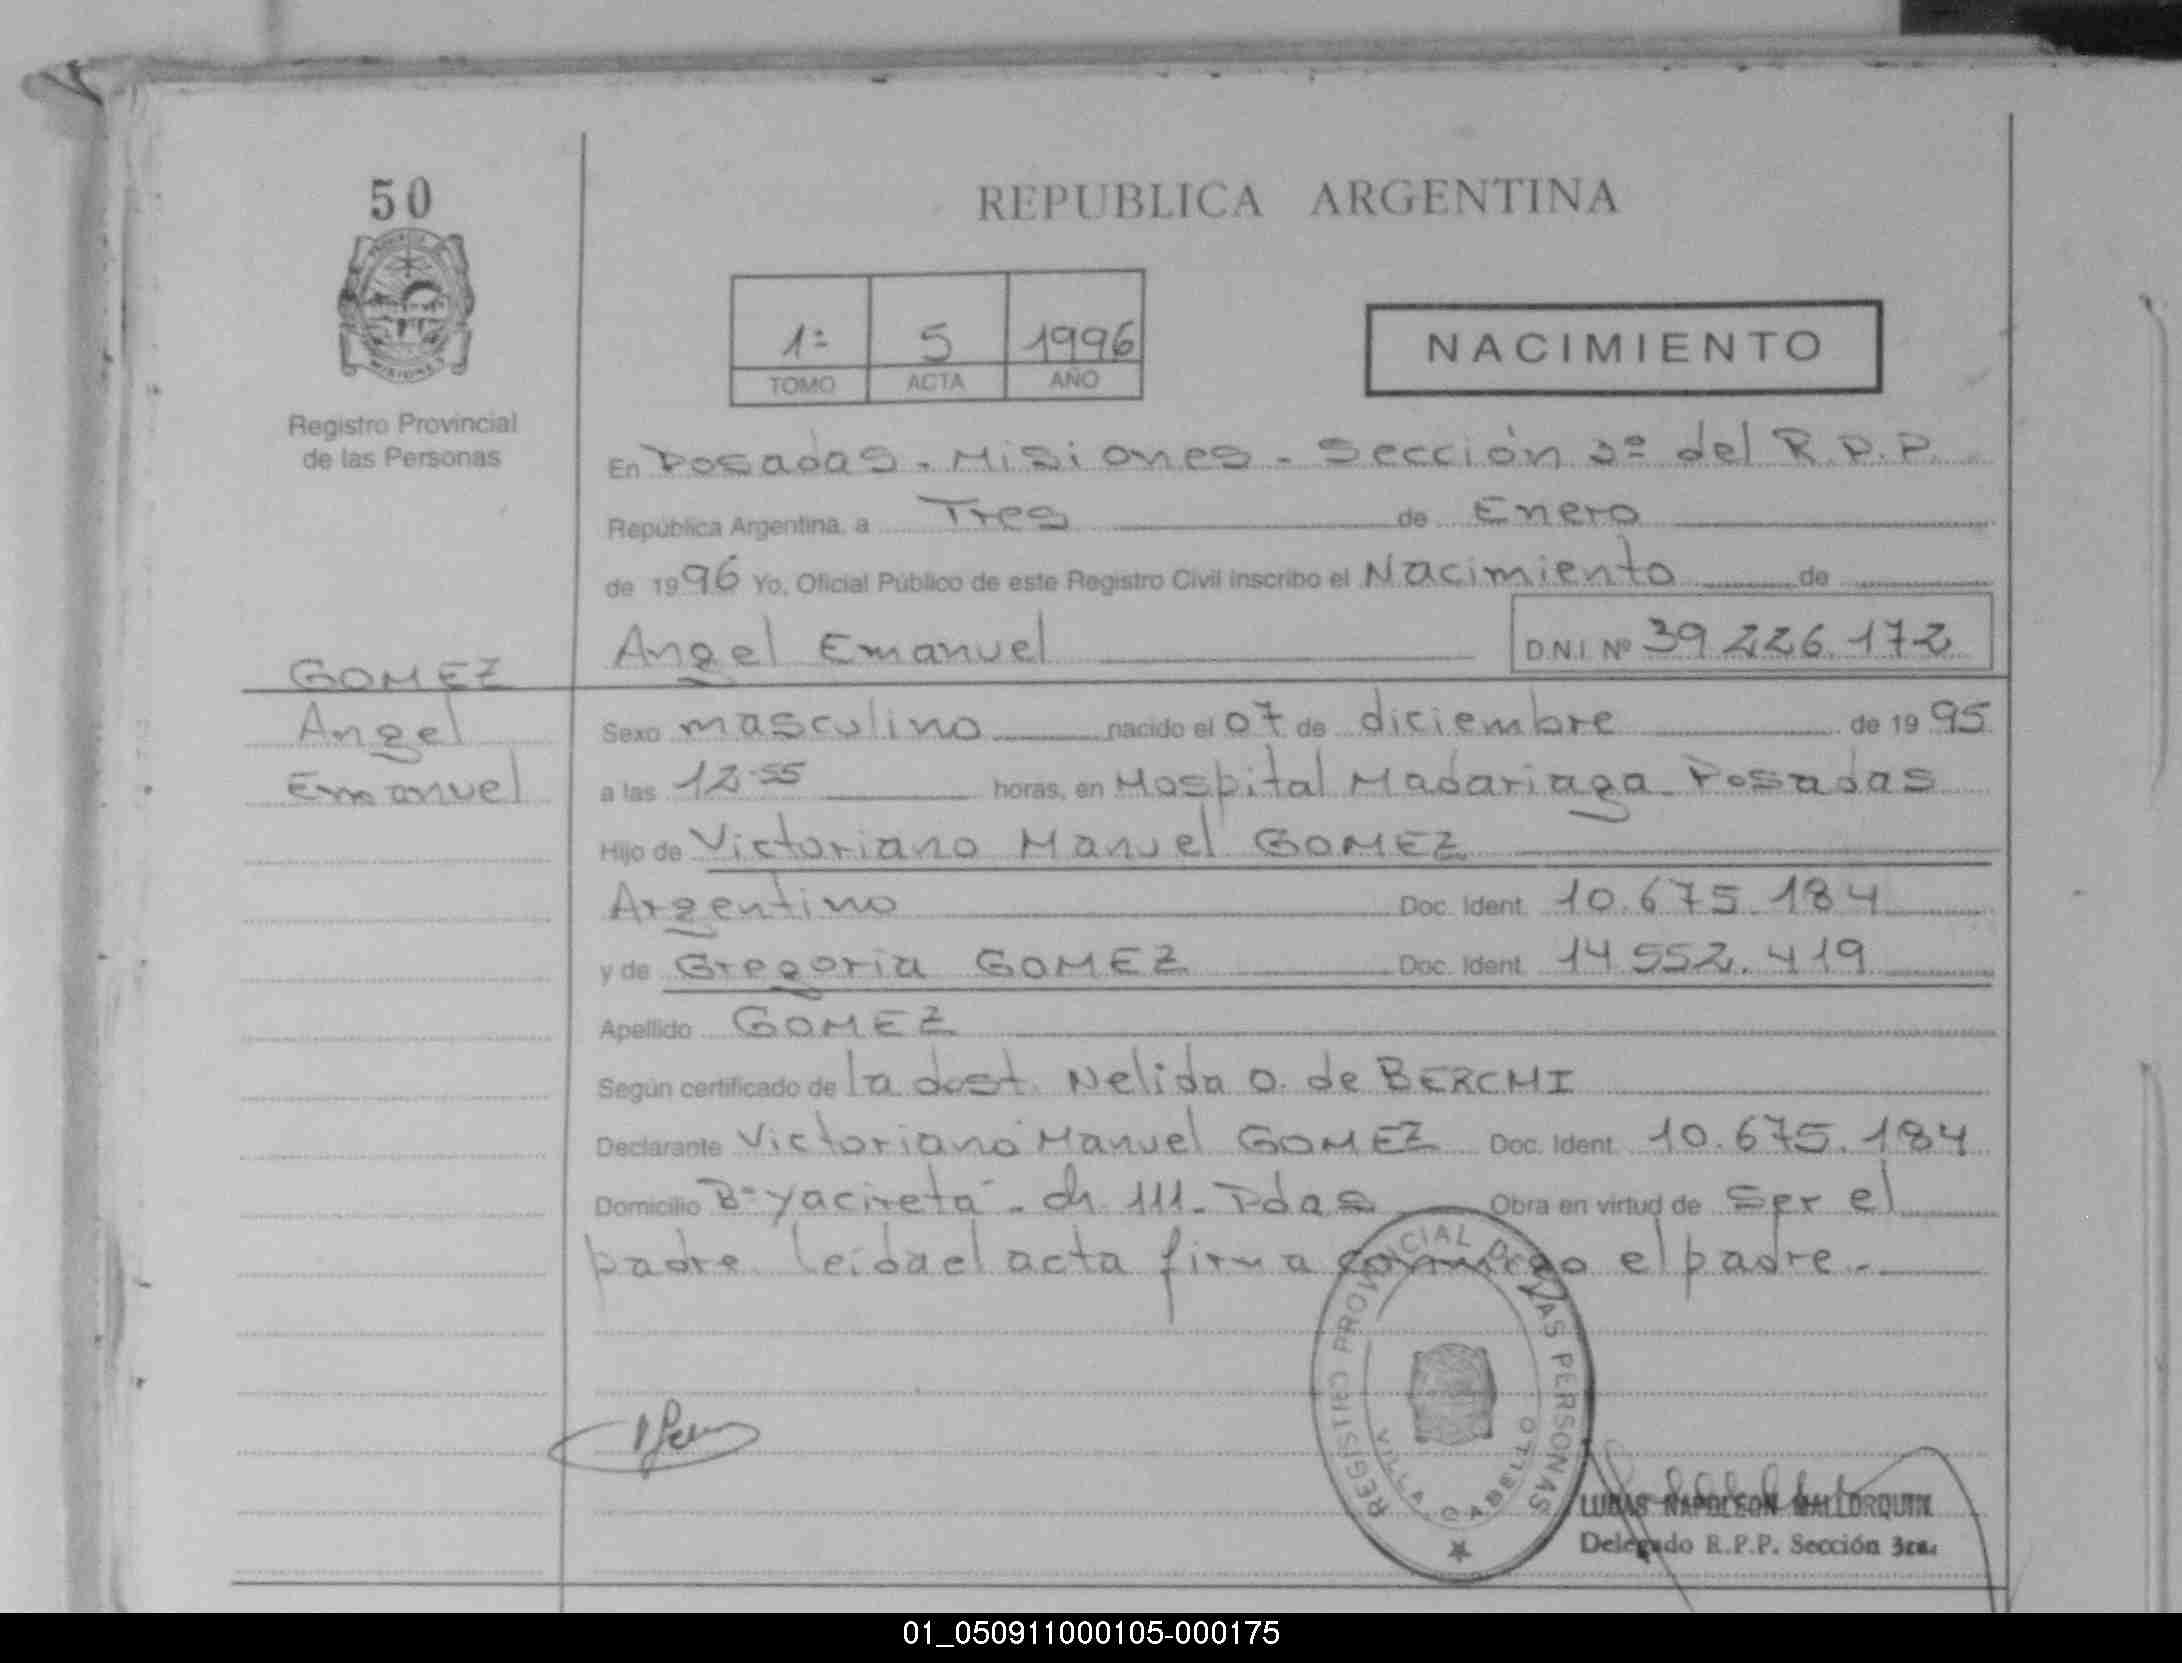 50
REPUBLICA ARGENTINA
1º 5 1996
TOMO ACTA AÑO
NACIMIENTO
Registro Provincial
de las Personas
En Posadas - Misiones - Sección 3º del R.P.P.
República Argentina, a Tres de Enero
de 1996 Yo, Oficial Público de este Registro Civil inscribo el Nacimiento de
Angel Emanuel D.N.I. Nº 39.226.172
GOMEZ
Angel
Emanuel
Sexo masculino nacido el 07 de diciembre de 1995
a las 12:55 horas, en Hospital Madariaga - Posadas
Hijo de Victoriano Manuel GOMEZ
Argentino Doc. Ident. 10.675.184
y de Gregoria GOMEZ Doc. Ident. 14.552.419
Apellido GOMEZ
Según certificado de la dost. Nelida O. de BERCHI
Declarante Victoriano Manuel GOMEZ Doc. Ident. 10.675.184
Domicilio Bº Yacireta - ch 111 - Pdas Obra en virtud de ser el
padre. leida el acta firma conmigo el padre.-
REGISTRO PROVINCIAL DE LAS PERSONAS
VILLA CABELLO
LUCAS NAPOLEON MALLORQUIN
Delegado R.P.P. Sección 3ra.
01_050911000105-000175